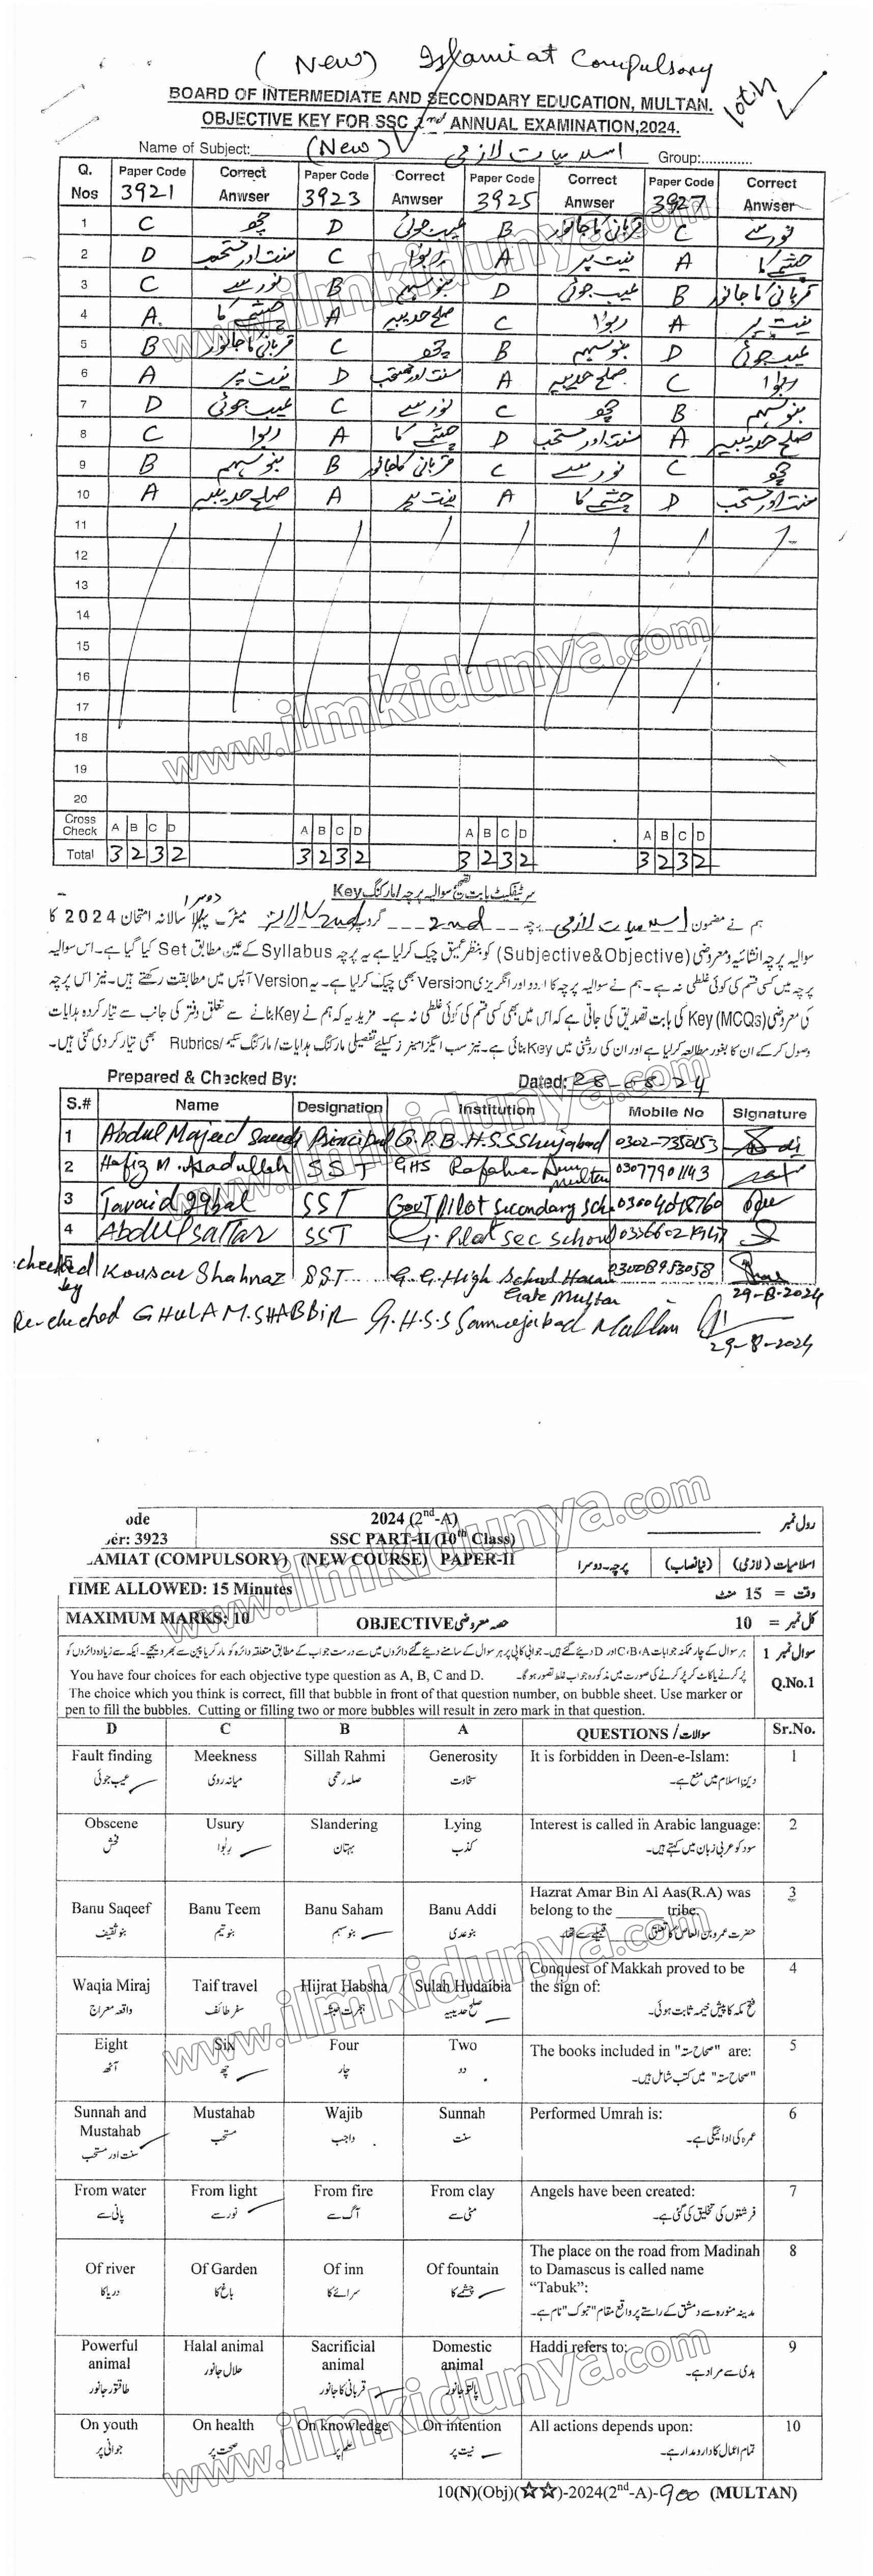 (New) Islamiat Compulsory
10th
BOARD OF INTERMEDIATE AND SECONDARY EDUCATION, MULTAN.
OBJECTIVE KEY FOR SSC 2nd ANNUAL EXAMINATION,2024.
Name of Subject: (New) اسلامیات لازمی Group:.............
Q. Nos Paper Code 3921 Correct Anwser Paper Code 3923 Correct Anwser Paper Code 3925 Correct Anwser Paper Code 3927 Correct Anwser
1 C چھ D عیب جوئی B قربانی کا جانور C نور سے
2 D سنت اور مستحب C ربوا A نیت پر A چشمے کا
3 C نور سے B بنو سہم D عیب جوئی B قربانی کا جانور
4 A چشمے کا A صلح حدیبیہ C ربوا A نیت پر
5 B قربانی کا جانور C چھ B بنو سہم D عیب جوئی
6 A نیت پر D سنت اور مستحب A صلح حدیبیہ C ربوا
7 D عیب جوئی C نور سے C چھ B بنو سہم
8 C ربوا A چشمے کا D سنت اور مستحب A صلح حدیبیہ
9 B بنو سہم B قربانی کا جانور C نور سے C چھ
10 A صلح حدیبیہ A نیت پر A چشمے کا D سنت اور مستحب
11
12
13
14
15
16
17
18
19
20
Cross Check A B C D A B C D A B C D A B C D
Total 3 2 3 2 3 2 3 2 3 2 3 2 3 2 3 2
www.ilmkidunya.com
www.ilmkidunya.com
سرٹیفکیٹ بابت تصحیح سوالیہ پرچہ/مارکنگ Key
ہم نے مضمون اسلامیات لازمی پرچہ 2nd گروپ میٹرک پہلا دوسرا سالانہ امتحان 2024 کا
سوالیہ پرچہ انشائیہ و معروضی (Subjective&Objective) کو بنظر عمیق چیک کر لیا ہے یہ پرچہ Syllabus کے عین مطابق Set کیا گیا ہے۔ اس سوالیہ
پرچہ میں کسی قسم کی کوئی غلطی نہ ہے۔ ہم نے سوالیہ پرچہ کا اردو اور انگریزی Version بھی چیک کر لیا ہے۔ یہ Version آپس میں مطابقت رکھتے ہیں۔ نیز اس پرچہ
کی معروضی Key (MCQs) کی بابت تصدیق کی جاتی ہے کہ اس میں بھی کسی قسم کی کوئی غلطی نہ ہے۔ مزید یہ کہ ہم نے Key بنانے سے متعلق دفتر کی جانب سے تیار کردہ ہدایات
وصول کر کے ان کا بغور مطالعہ کر لیا ہے اور ان کی روشنی میں Key بنائی ہے۔ نیز سب ایگزامینرز کیلئے تفصیلی مارکنگ ہدایات/مارکنگ سکیم/Rubrics بھی تیار کر دی گئی ہیں۔
Prepared & Checked By: Dated: 28-08-24
S.# Name Designation Institution Mobile No Signature
1 Abdul Majeed Saeedi Principal G.P.B.H.S.S Shujabad 0302-7350153
2 Hafiz M. Asadullah SST GHS Multan 03077901143
3 Javaid Iqbal SST Govt Pilot Secondary Sch.
4 Abdul Sattar SST G. Pilot Sec School
checked by Kousar Shahnaz SST G.G. High School Gate Multan 03008953058
29-8-2024
Re-checked GHULAM SHABBIR G.H.S.S Multan
29-8-2024
ode
er: 3923
2024 (2nd-A)
SSC PART-II (10th Class)
رول نمبر
AMIAT (COMPULSORY) (NEW COURSE) PAPER-II پرچہ - دوسرا (نیا نصاب) اسلامیات (لازمی)
TIME ALLOWED: 15 Minutes وقت = 15 منٹ
MAXIMUM MARKS: 10 OBJECTIVE حصہ معروضی کل نمبر = 10
سوال نمبر 1 ہر سوال کے چار ممکنہ جوابات C،B،A اور D دیئے گئے ہیں۔ جوابی کاپی پر ہر سوال کے سامنے دیئے گئے دائروں میں سے درست جواب کے مطابق متعلقہ دائرہ کو مارکر یا پین سے بھر دیجیے۔ ایک سے زیادہ دائروں کو
پُر کرنے یا کاٹ کر پُر کرنے کی صورت میں مذکورہ جواب غلط تصور ہو گا۔
Q.No.1
You have four choices for each objective type question as A, B, C and D.
The choice which you think is correct, fill that bubble in front of that question number, on bubble sheet. Use marker or
pen to fill the bubbles. Cutting or filling two or more bubbles will result in zero mark in that question.
D C B A QUESTIONS / سوالات Sr.No.
Fault finding Meekness Sillah Rahmi Generosity It is forbidden in Deen-e-Islam: 1
عیب جوئی میانہ روی صلہ رحمی سخاوت دین اسلام میں منع ہے۔
Obscene Usury Slandering Lying Interest is called in Arabic language: 2
فحش ربٰوا بہتان کذب سود کو عربی زبان میں کہتے ہیں۔
Banu Saqeef Banu Teem Banu Saham Banu Addi Hazrat Amar Bin Al Aas(R.A) was belong to the ______ tribe. 3
بنو ثقیف بنو تیم بنو سہم بنو عدی حضرت عمرو بن العاص کا تعلق ______ قبیلے سے تھا۔
Waqia Miraj Taif travel Hijrat Habsha Sulah Hudaibia Conquest of Makkah proved to be the sign of: 4
واقعہ معراج سفر طائف ہجرت حبشہ صلح حدیبیہ فتح مکہ کا پیش خیمہ ثابت ہوئی۔
Eight Six Four Two The books included in "صحاح ستہ" are: 5
آٹھ چھ چار دو "صحاح ستہ" میں کتب شامل ہیں۔
Sunnah and Mustahab Mustahab Wajib Sunnah Performed Umrah is: 6
سنت اور مستحب مستحب واجب سنت عمرہ کی ادائیگی ہے۔
From water From light From fire From clay Angels have been created: 7
پانی سے نور سے آگ سے مٹی سے فرشتوں کی تخلیق کی گئی ہے۔
Of river Of Garden Of inn Of fountain The place on the road from Madinah to Damascus is called name “Tabuk”: 8
دریا کا باغ کا سرائے کا چشمے کا مدینہ منورہ سے دمشق کے راستے پر واقع مقام "تبوک" نام ہے۔
Powerful animal Halal animal Sacrificial animal Domestic animal Haddi refers to: 9
طاقتور جانور حلال جانور قربانی کا جانور پالتو جانور ہدی سے مراد ہے۔
On youth On health On knowledge On intention All actions depends upon: 10
جوانی پر صحت پر علم پر نیت پر تمام اعمال کا دارومدار ہے۔
www.ilmkidunya.com
www.ilmkidunya.com
10(N)(Obj)(☆☆)-2024(2nd-A)-900 (MULTAN)